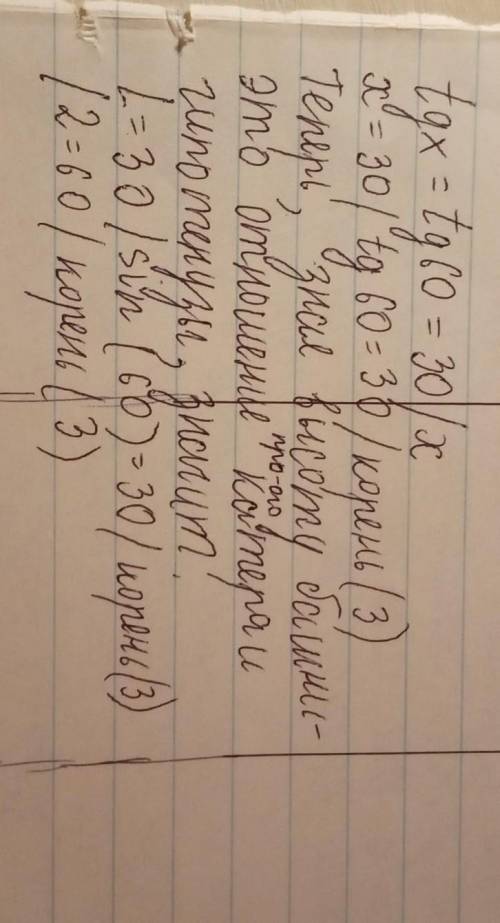 tgx = tg60 = 30/x
x = 30/tg60 = 30/корень(3)
Теперь, зная высоту башни-
это отношение про-ого катера и
гипотенузы, значит.
L = 30/sin(60) = 30/корень(3)
/2 = 60/корень(3)